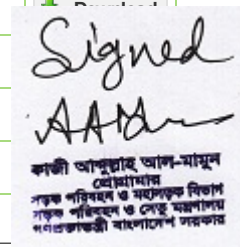 Download
Signed
কাজী আব্দুল্লাহ আল-মামুন
প্রোগ্রামার
সড়ক পরিবহন ও মহাসড়ক বিভাগ
সড়ক পরিবহন ও সেতু মন্ত্রণালয়
গণপ্রজাতন্ত্রী বাংলাদেশ সরকার